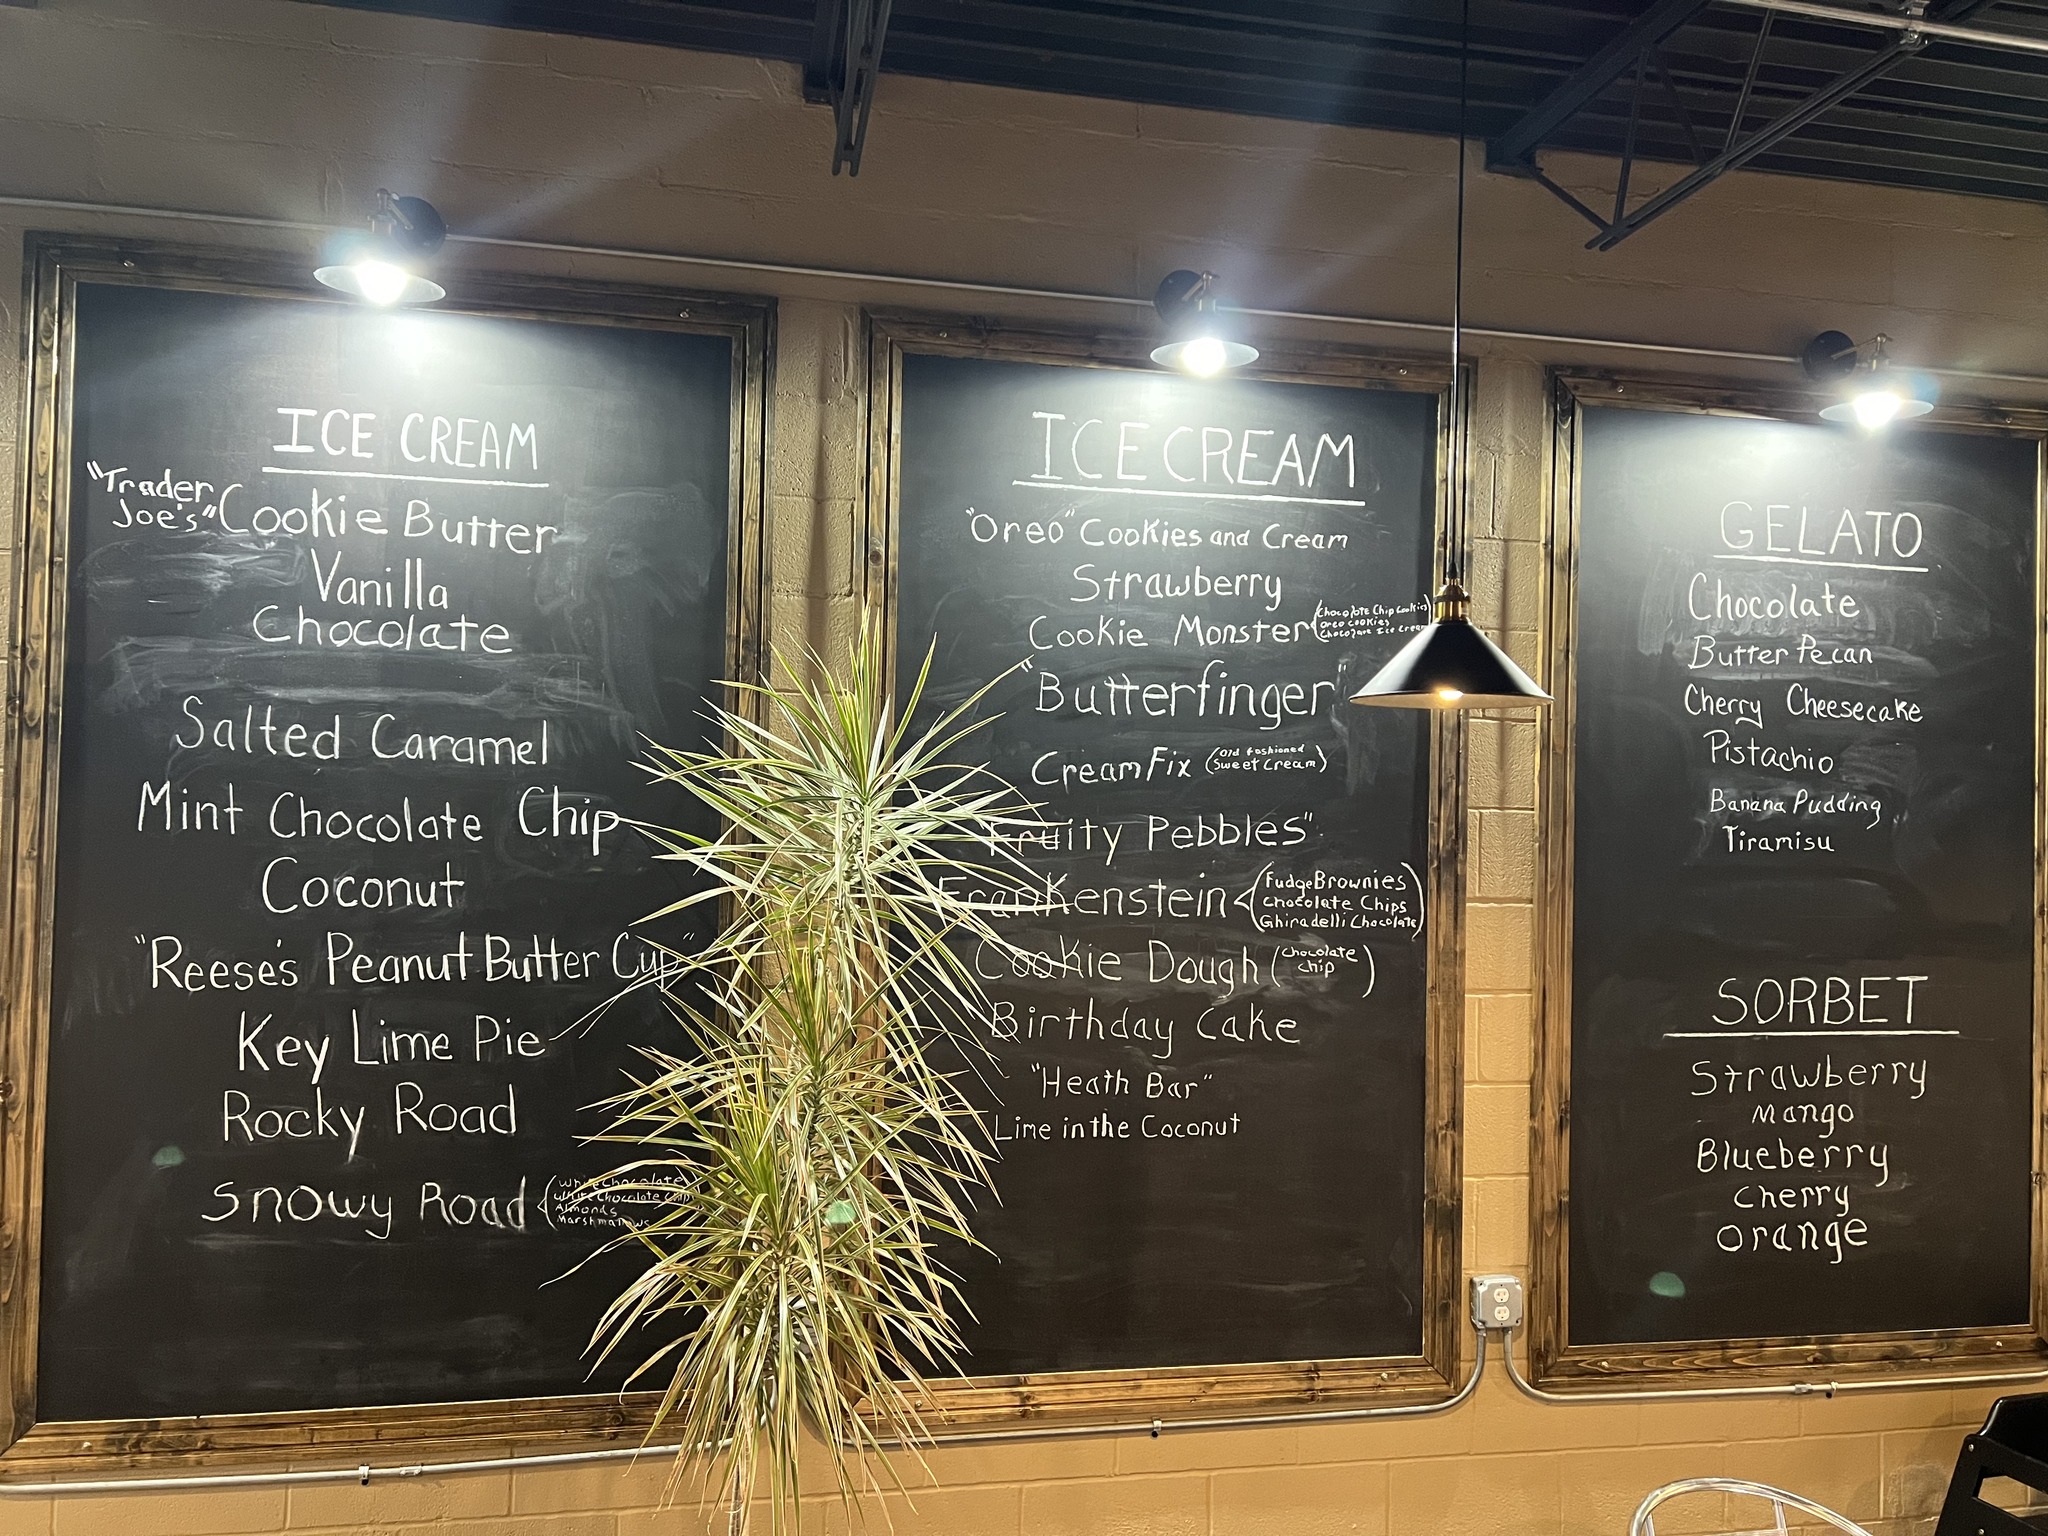 ICE CREAM
"Trader
Joe's" Cookie Butter
Vanilla
Chocolate
Salted Caramel
Mint Chocolate Chip
Coconut
"Reese's Peanut Butter Cup"
Key Lime Pie
Rocky Road
Snowy Road
(White Chocolate)
White Chocolate Chip
Almonds
Marshmallows
ICE CREAM
"Oreo" Cookies and Cream
Strawberry
Cookie Monster
(Chocolate Chip Cookies)
Oreo Cookies
Chocolate Ice Cream
"Butterfinger"
Cream Fix
(Old Fashioned
Sweet Cream)
Fruity Pebbles"
Frankenstein
(Fudge Brownies
Chocolate Chips
Ghiradelli Chocolate)
Cookie Dough (Chocolate
Chip)
Birthday Cake
"Heath Bar"
Lime in the Coconut
GELATO
Chocolate
Butter Pecan
Cherry Cheesecake
Pistachio
Banana Pudding
Tiramisu
SORBET
Strawberry
Mango
Blueberry
Cherry
Orange